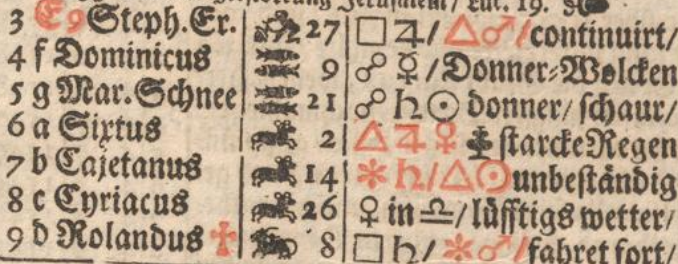 Zerstörung Jerusalem/ Luc. 19.
3 E 9 Steph. Er. 27 □ ♃/ △ ♂/ continuirt/
4 f Dominicus 9 ☍ ☿ / Donner⸗Wolcken
5 g Mar. Schnee 21 ☍ ♄ ☉ donner/ schaur/
6 a Sixtus 2 △ ♃ ♀ starcke Regen
7 b Cajetanus 14 ✻ ♄/ △ ☉ unbeständig
8 c Cyriacus 26 ♀ in ♎/ lüfftigs wetter/
9 d Rolandus ✝ 8 □ ♄/ ✻ ♂/ fahret fort/